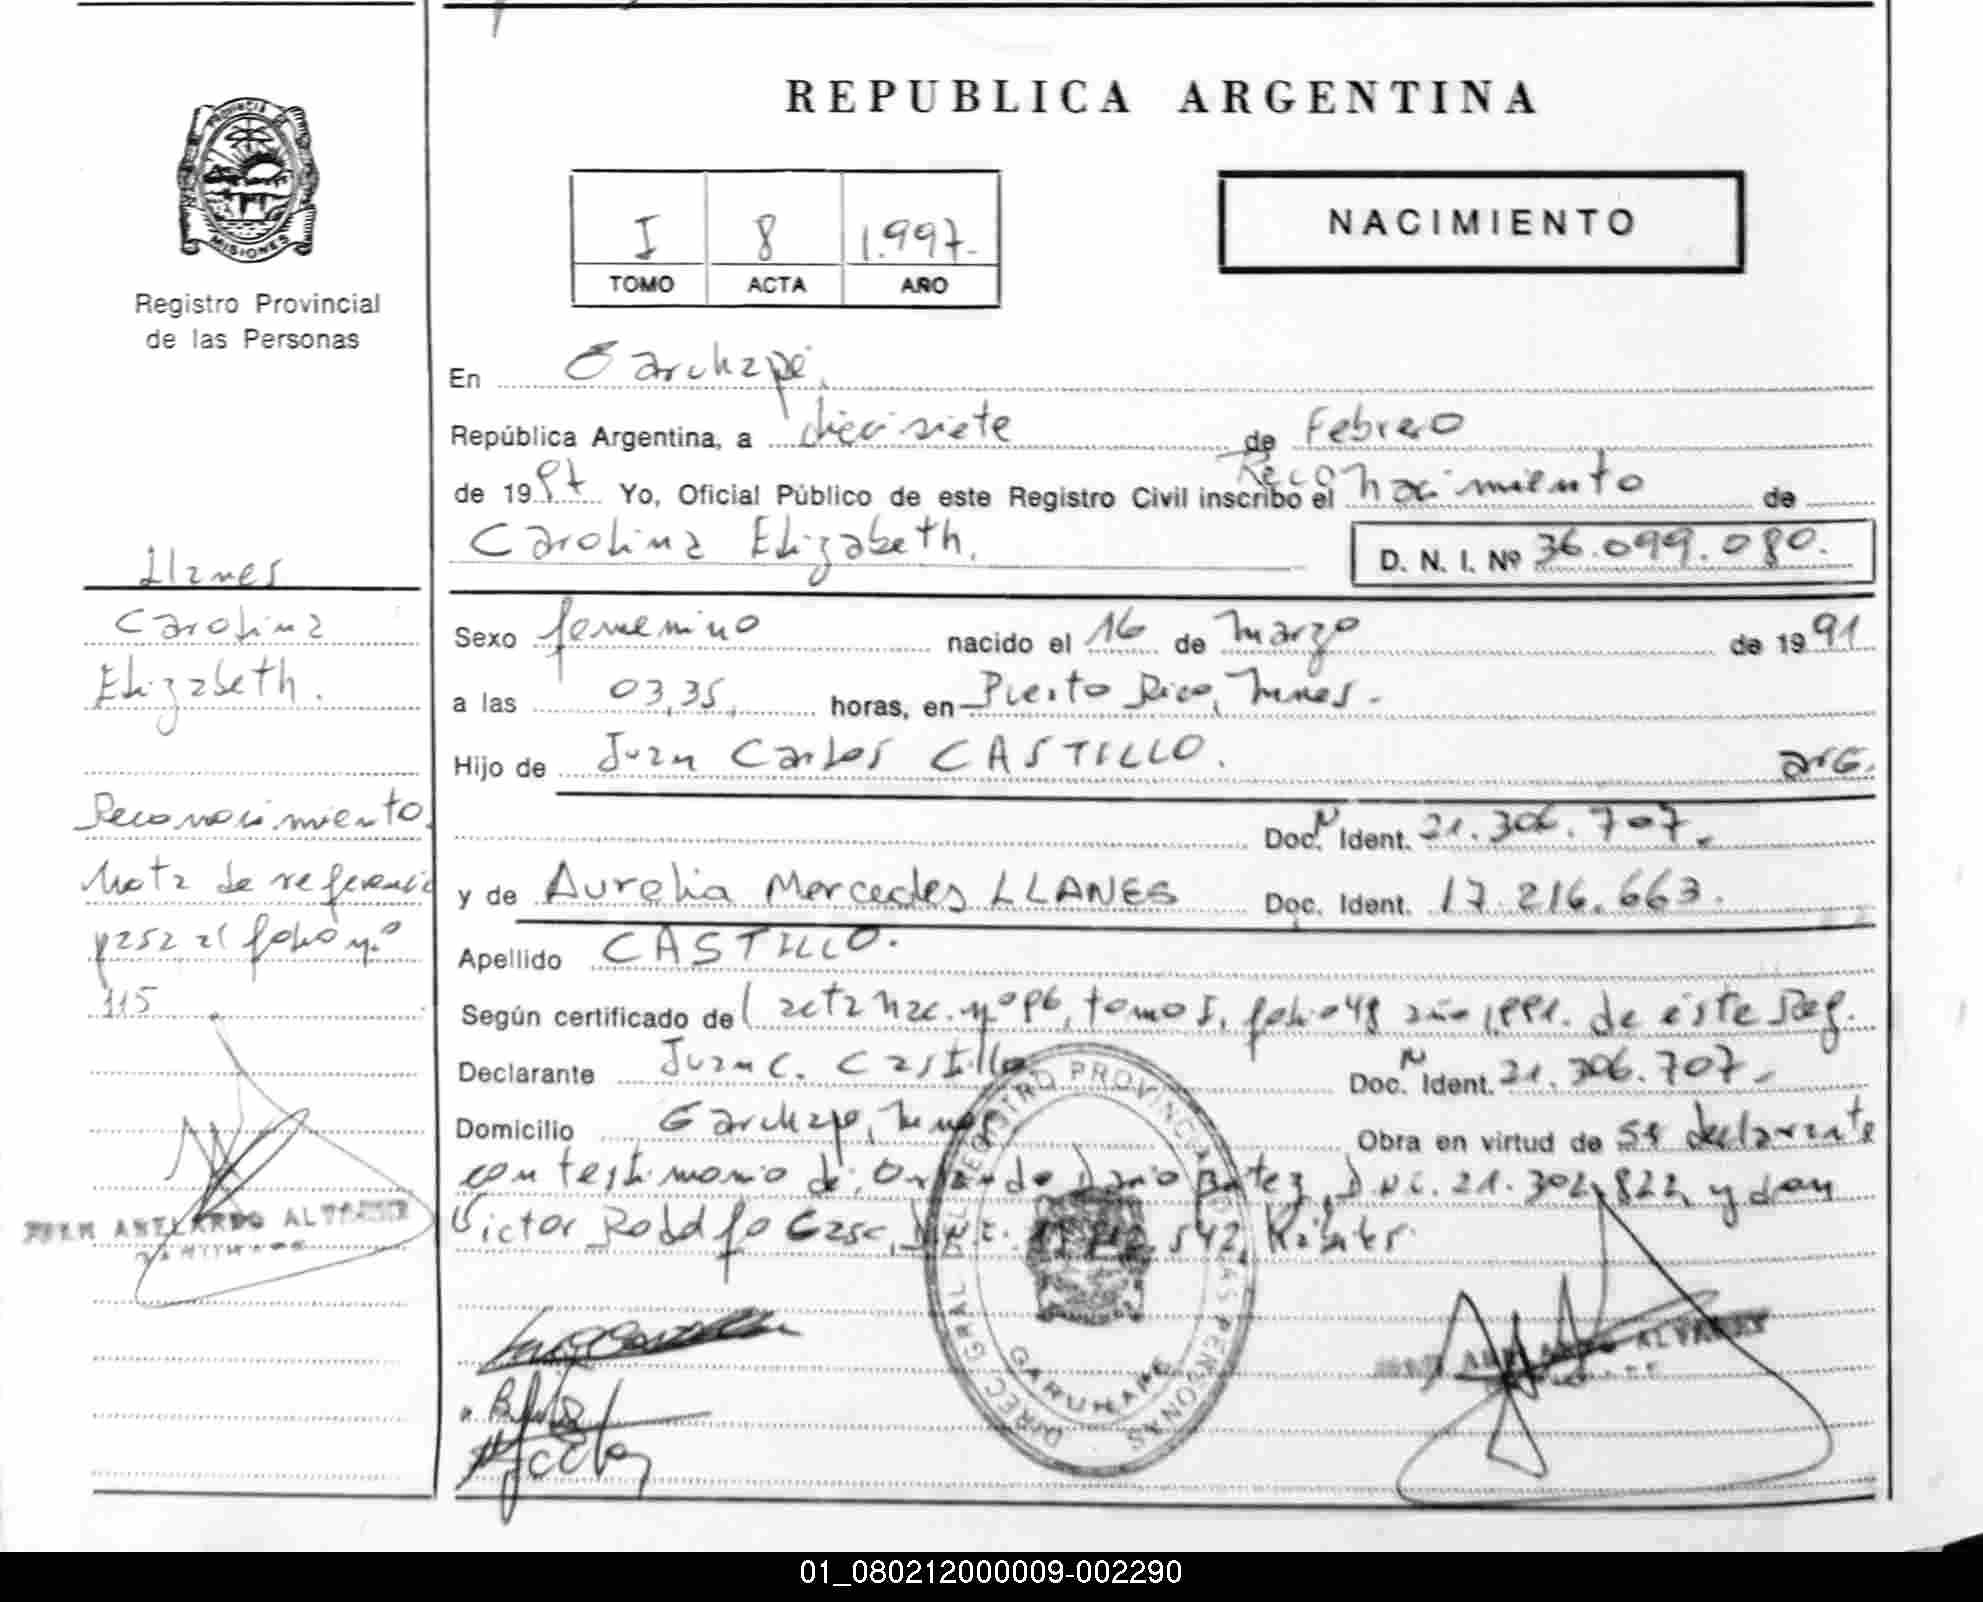 REPUBLICA ARGENTINA
PROVINCIA DE
MISIONES
Registro Provincial
de las Personas
I 8 1.997.-
TOMO ACTA AÑO
NACIMIENTO
En Garuhapé,
República Argentina, a diecisiete de Febrero
de 1997 Yo, Oficial Público de este Registro Civil inscribo el Reconocimiento de
Carolina Elizabeth.
D. N. I. Nº 36.099.080.
Sexo femenino nacido el 16 de Marzo de 1991
a las 03,35, horas, en Puerto Rico, Mnes.
Hijo de Juan Carlos CASTILLO. arG.
Doc. Ident. 21.306.707.
y de Aurelia Mercedes LLANES Doc. Ident. 17.216.663.
Apellido CASTILLO.
Según certificado de acta nac. nº 96, tomo I, folio 48 año 1991. de éste Reg.
Declarante Juan C. Castillo Doc. Ident. 21.306.707.
Domicilio Garuhape, Mnes Obra en virtud de su declarante
con testimonio de: Dario D.N.I. 21.302.822, y don
Victor Rodolfo 542,
Llanes
Carolina
Elizabeth.
Reconocimiento.
Nota de referencia
al folio nº
115
ABELARDO
DIREC. GRAL. DEL REGISTRO PROVINCIAL DE LAS PERSONAS
GARUHAPE
01_080212000009-002290